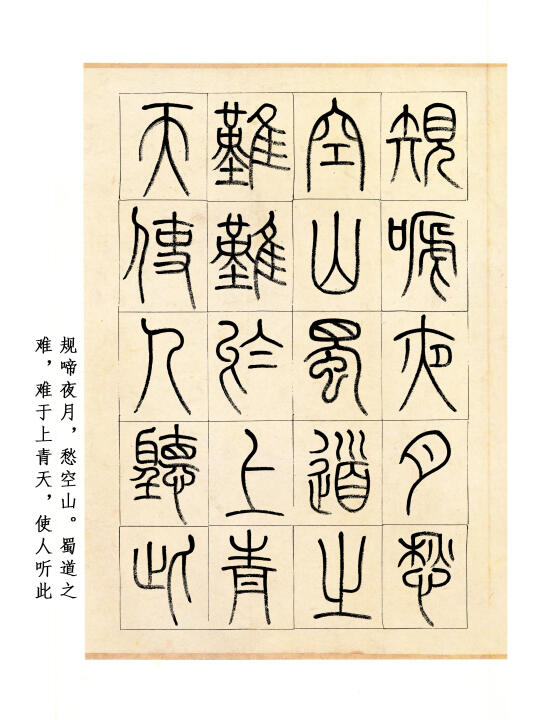 規嗁夜月愁
空山蜀道之
難難於上青
天使人聽此
规啼夜月，愁空山。蜀道之
难，难于上青天，使人听此